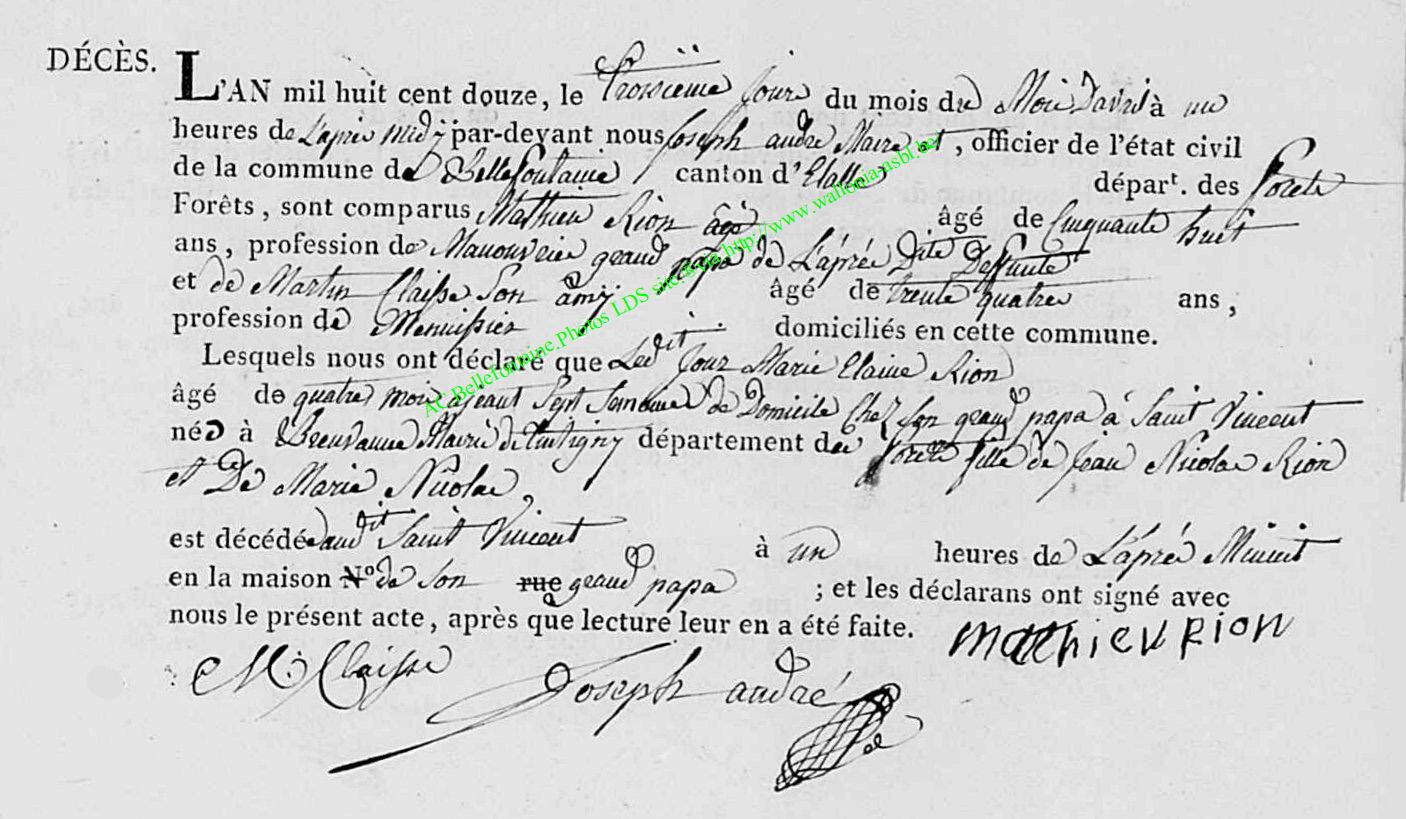 DÉCÈS.
L'AN mil huit cent douze, le troisieme jour du mois du Moi d'avril à un
heures de L'aprè midy par-devant nous Joseph andré Maire et, officier de l'état civil
de la commune de Bellefontaine canton d'Etalle départ. des forets
Forêts, sont comparus Mathieu Rion âgé âgé de Cinquante huit
ans, profession de Manouvrié grand papa de L'aprée Dite Deffunte
et de Martin Claisse Son âmy âgé de trente quatre ans,
profession de Menuissier domiciliés en cette commune.
Lesquels nous ont déclaré que Ledit Jour Marie Claire Rion
âgé de quatre moi ajeant Sept Semaines de Domicile Chez Son grand papa à Saint Vincent
née à Mairie de tintigny département de forets fille de Jean Nicolas Rion
et De Marie Nicolas,
est décédée audit Saint Vincent à un heures de L'aprée Minuit
en la maison N.º de Son rue grand papa ; et les déclarans ont signé avec
nous le présent acte, après que lecture leur en a été faite.
mathieu Rion
M: Claisse Joseph andré
AC Bellefontaine.Photos LDS sited via http://www.wallonia-asbl.be/